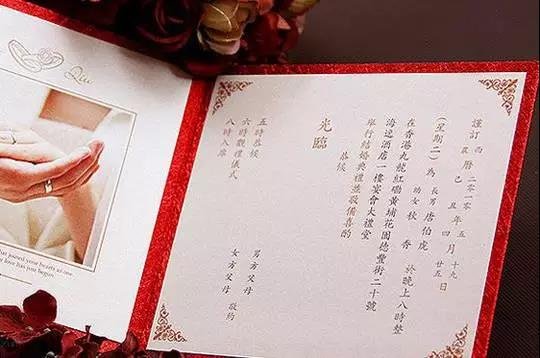 Qiu
that joined your hearts as one
love has just begun
謹訂
西 二〇一〇 五 十九
農曆己丑年四月廿五日
(星期二) 為 長男 唐伯虎
幼女 秋香 於晚上八時整
在香港九龍紅磡黃埔花園德豐街二十號
海逸酒店一樓宴會大禮堂
舉行結婚典禮並敬備喜酌
恭候
光臨
男方父母
女方父母 敬約
五時恭候
六時觀禮儀式
八時入席